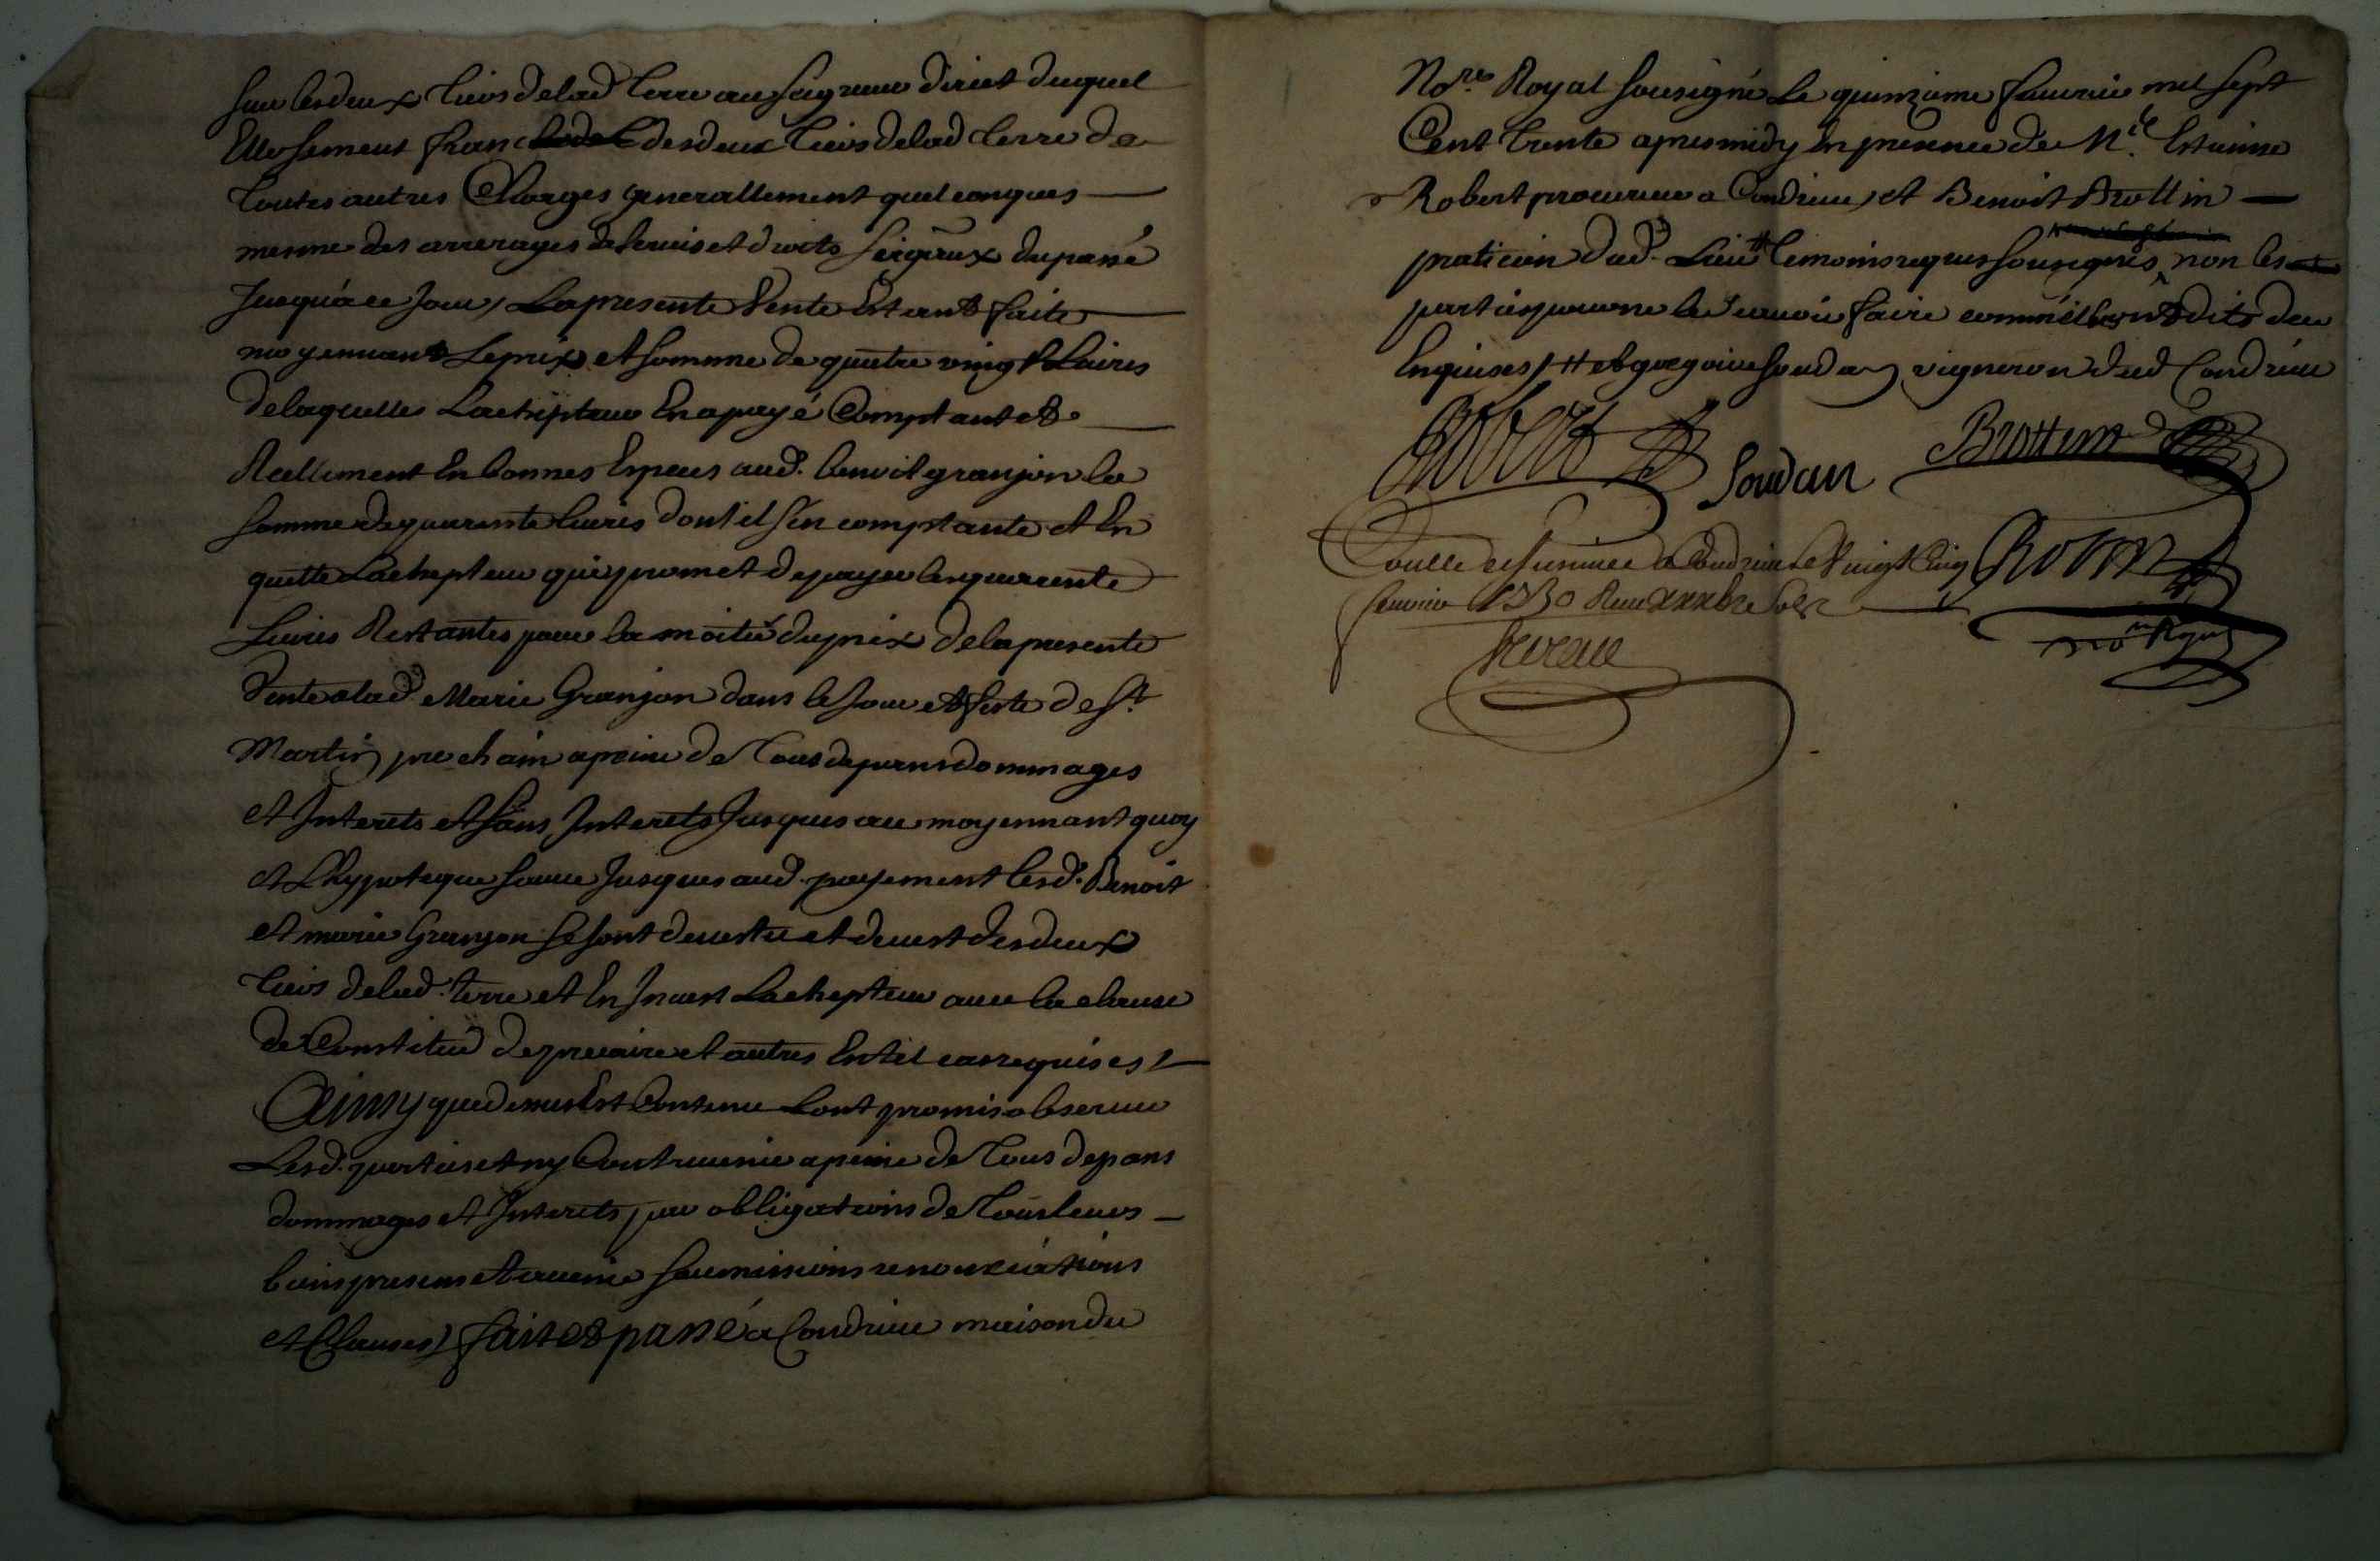 sur les deux tiers de lad terre au seigneur direct duquel
franc des deux tiers de lad terre de
toutes autres Charges generallement quelconques
mesme des arrerages de servis et droits seigraux du passé
Jusqu'a ce Jour, La presente Vente Estant faite
moyennant Le prix et somme de quatre vingt Livres
de laquelle Lachepteur En a payé Comptant et
Reellement En bonnes Especes aud. benoit granjon la
somme de quarente livres dont il s'en comptante et En
quitte Lachepteur qui promet de payer les quarente
Livres Restantes pour la moitié du prix de la presente
Vente a lad. Marie Granjon dans le Jour et feste de St.
Martin prochain a peine de Tous depens dommages
et Interets et sans Interets Jusques au moyennant quoy
et L'hypoteque sauve Jusques aud. payement lesd. Benoit
et marie Granjon se sont devestu et devest des deux
tiers de lad. terre et En Invest Lachepteur avec la clause
de Constitut de precaire et autres En tel cas requises
Ainsy que dessus Est Contenu Lont promis observer
Lesd. parties et ny Contrevenir a peine de Tous depans
dommages et Interets par obligations de Tous leurs
biens presens et avenir soumissions renonciations
et Clauses, fait et passé a Condrieu maison du
Nore. Royal sousigné Le quinzieme fevrier mil sept
Cent trente apres midy En presence de Me. Estienne
Robert procureur a Condrieu, et Benoit Brottin
praticien dud. Lieu # temoins requis sousignés non les
parties pour ne le scavoir faire comme ils ont dits de ce
Enquises / # et gregoire soudan vigneron dud Condrieu
Robert
Soudan
Brottin
Controllé a Condrieu le Vingt Cinq
fevrier 1730 Receu
nore Royal